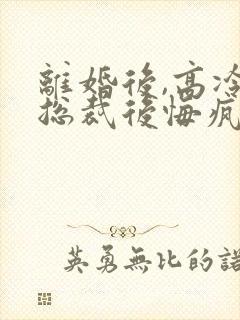 離婚後,高冷
總裁後悔瘋
英勇無比的諾